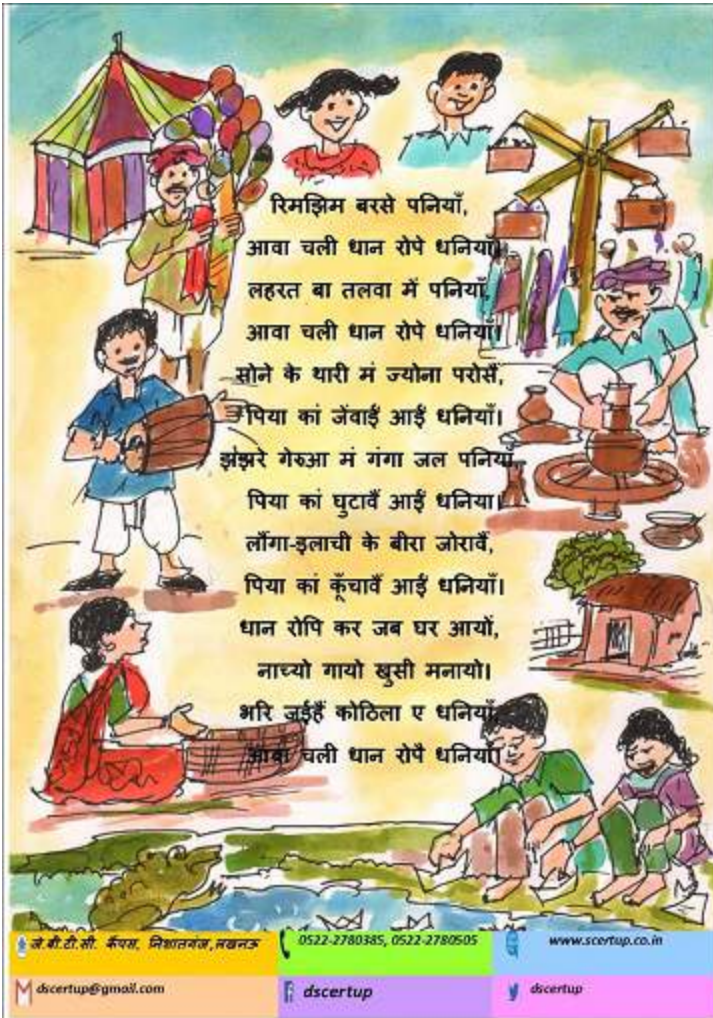 रिमझिम बरसे पनियाँ,
आवा चली धान रोपे धनियाँ।
लहरत बा तलवा में पनियाँ,
आवा चली धान रोपे धनियाँ।
सोने के थारी मं ज्योना परोसैं,
पिया कां जेंवाईं आईं धनियाँ।
झंझरे गेरुआ मं गंगा जल पनियाँ,
पिया कां घुटावैं आईं धनिया।
लौंगा-इलाची के बीरा जोरावैं,
पिया कां कूँचावैं आईं धनियाँ।
धान रोपि कर जब घर आयों,
नाच्यो गायो खुसी मनायो।
भरि जईहैं कोठिला ए धनियाँ,
आवा चली धान रोपै धनियाँ।
जे.बी.टी.सी. कैंपस, निशातगंज,लखनऊ
0522-2780385, 0522-2780505
www.scertup.co.in
dscertup@gmail.com
dscertup
dscertup